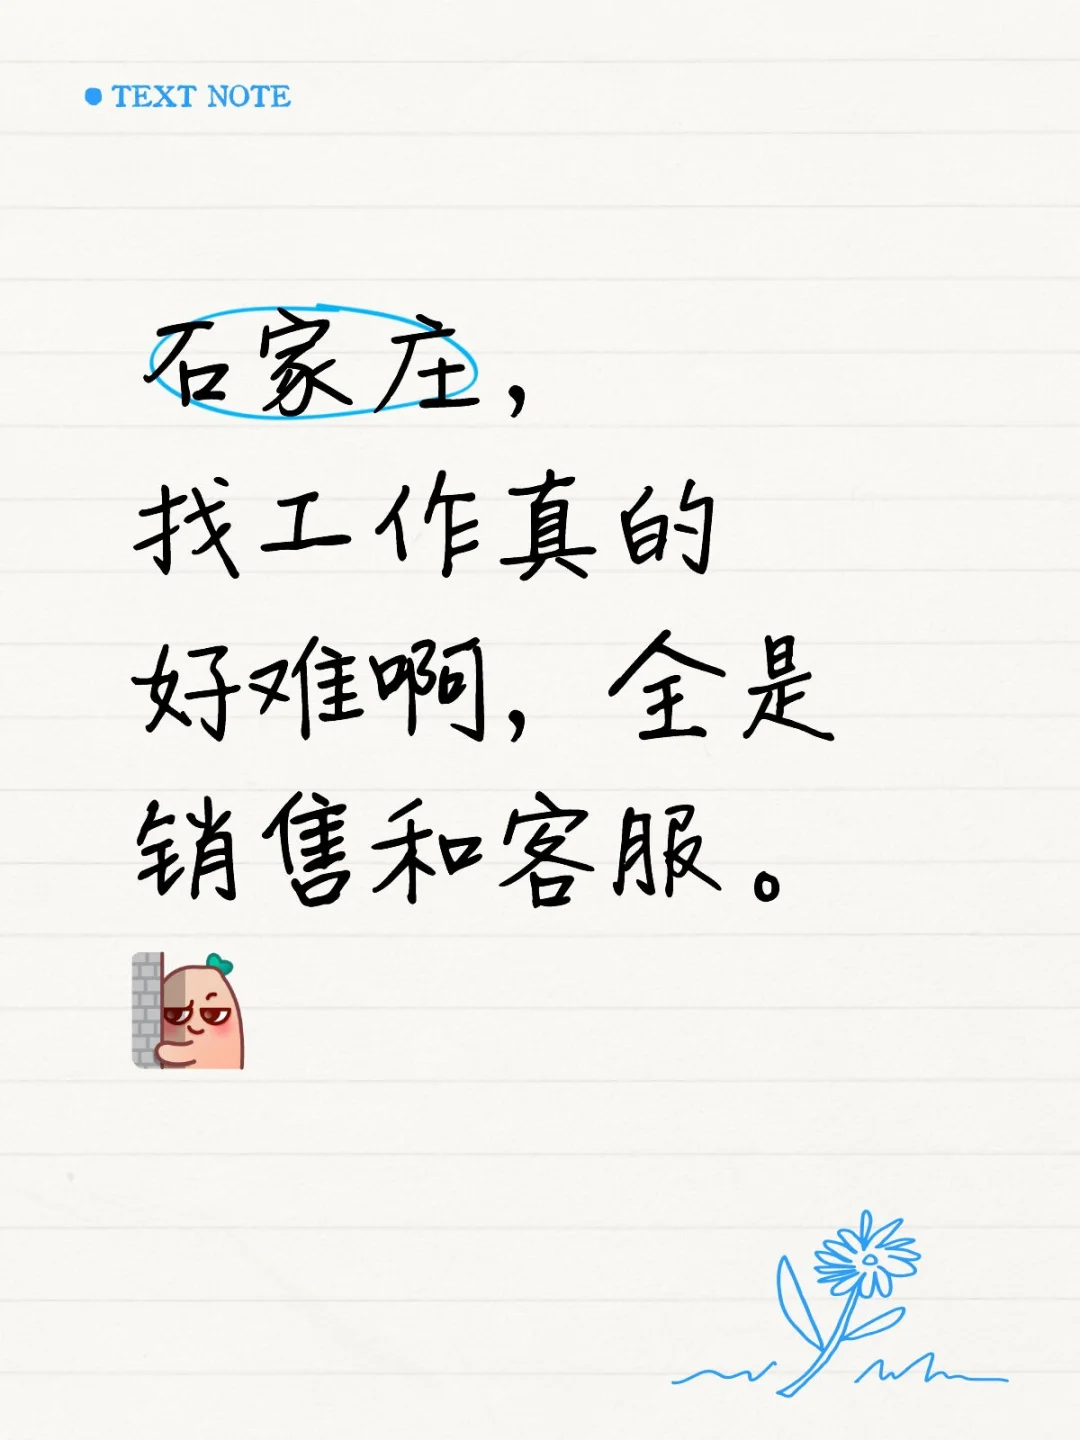 TEXT NOTE
石家庄，
找工作真的
好难啊，全是
销售和客服。